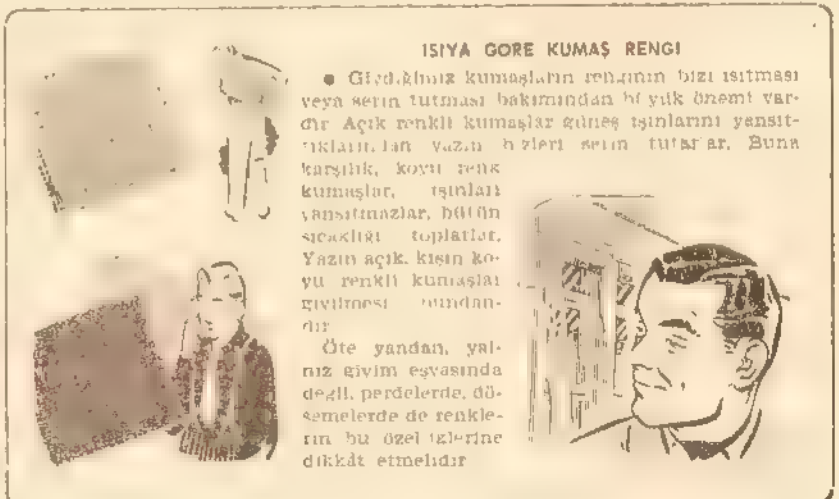 ISIYA GÖRE KUMAŞ RENGİ
● Giydiğimiz kumaşların renginin bizi ısıtması
veya serin tutması bakımından büyük önemi var-
dır Açık renkli kumaşlar güneş ışınlarını yansıt-
tıklarından yazın bizleri serin tutarlar. Buna
karşılık, koyu renk
kumaşlar, ışınları
yansıtmazlar, bütün
sıcaklığı toplarlar.
Yazın açık, kışın ko-
yu renkli kumaşlar
giyilmesi bundan-
dır
Öte yandan, yal-
nız giyim eşyasında
değil, perdelerde, dö-
şemelerde de renkle-
rin bu özelliklerine
dikkât etmelidir